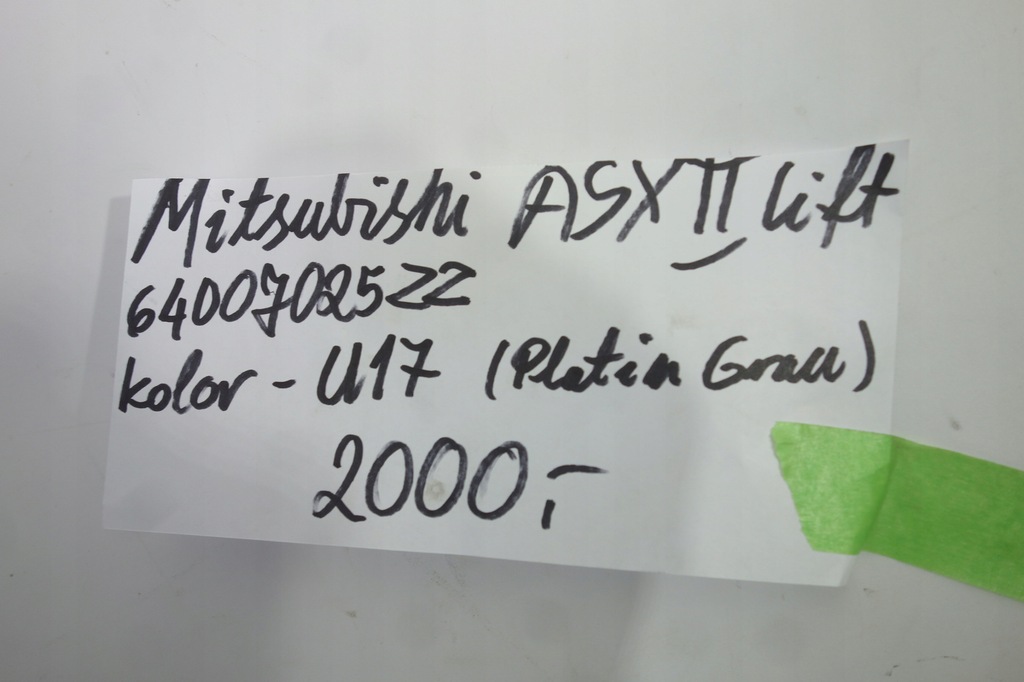 Mitsubishi ASX II lift
64007025ZZ
kolor - U17 (Platin Grau)
2000,-